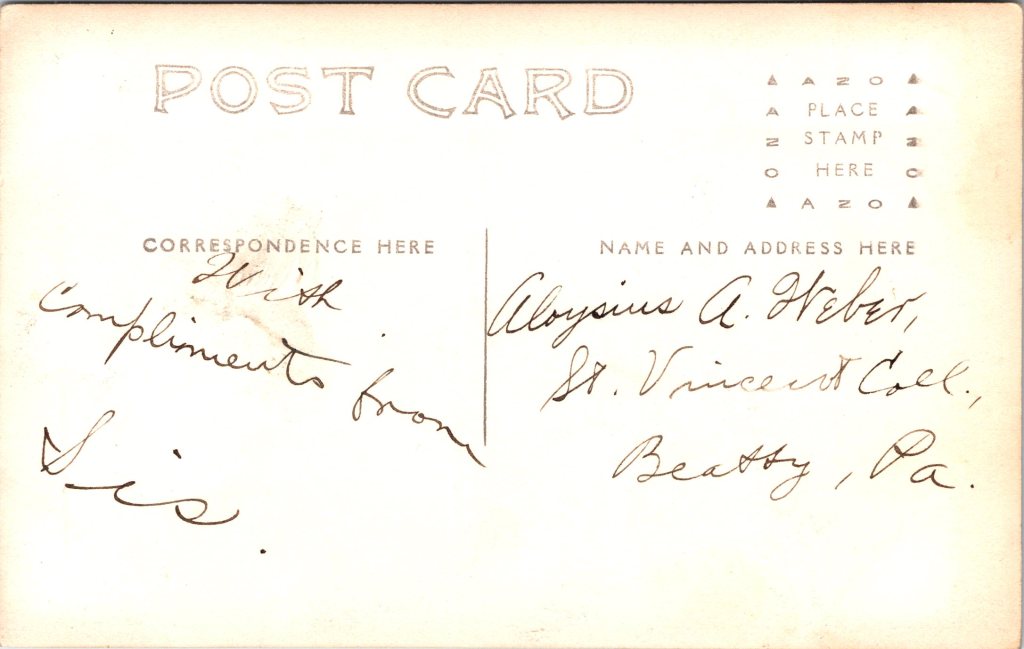 POST CARD
A Z O
A PLACE A
Z STAMP Z
O HERE O
A Z O
CORRESPONDENCE HERE
NAME AND ADDRESS HERE
With
compliments from
Sis.
Aloysius A. Weber,
St. Vincent Coll.,
Beatty, Pa.